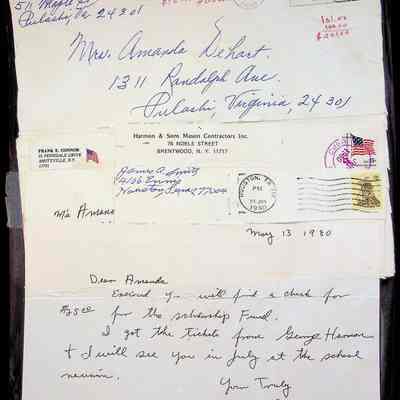 511 Maple
Pulaski, Va 24301
101.00
Mrs. Amanda Dehart.
1311 Randolph Ave.
Pulaski, Virginia, 24301
Harmon & Sons Mason Contractors Inc.
76 NOBLE STREET
BRENTWOOD, N. Y. 11717
FRANK E. CONNOR
11717
4106
Houston, Texas 77004
HOUSTON, TX
PM
1980
M/s Amana
May 13 1980
Dear Amanda
Enclosed you will find a check for
$25.00 for the scholarship Fund.
I got the tickets from George Harmon
+ I will see you in July at the school
reunion.
Your Truly